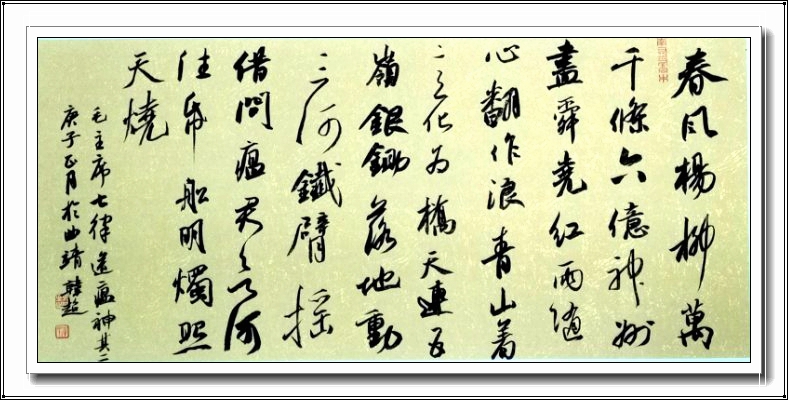 春风楊柳萬
千條六億神州
盡舜堯紅雨隨
心翻作浪青山着
意化为橋天連五
嶺銀鋤落地動
三河鐵臂摇
借問瘟君欲何
往帋船明燭照
天燒
毛主席七律送瘟神其二
庚子正月於曲靖韓超